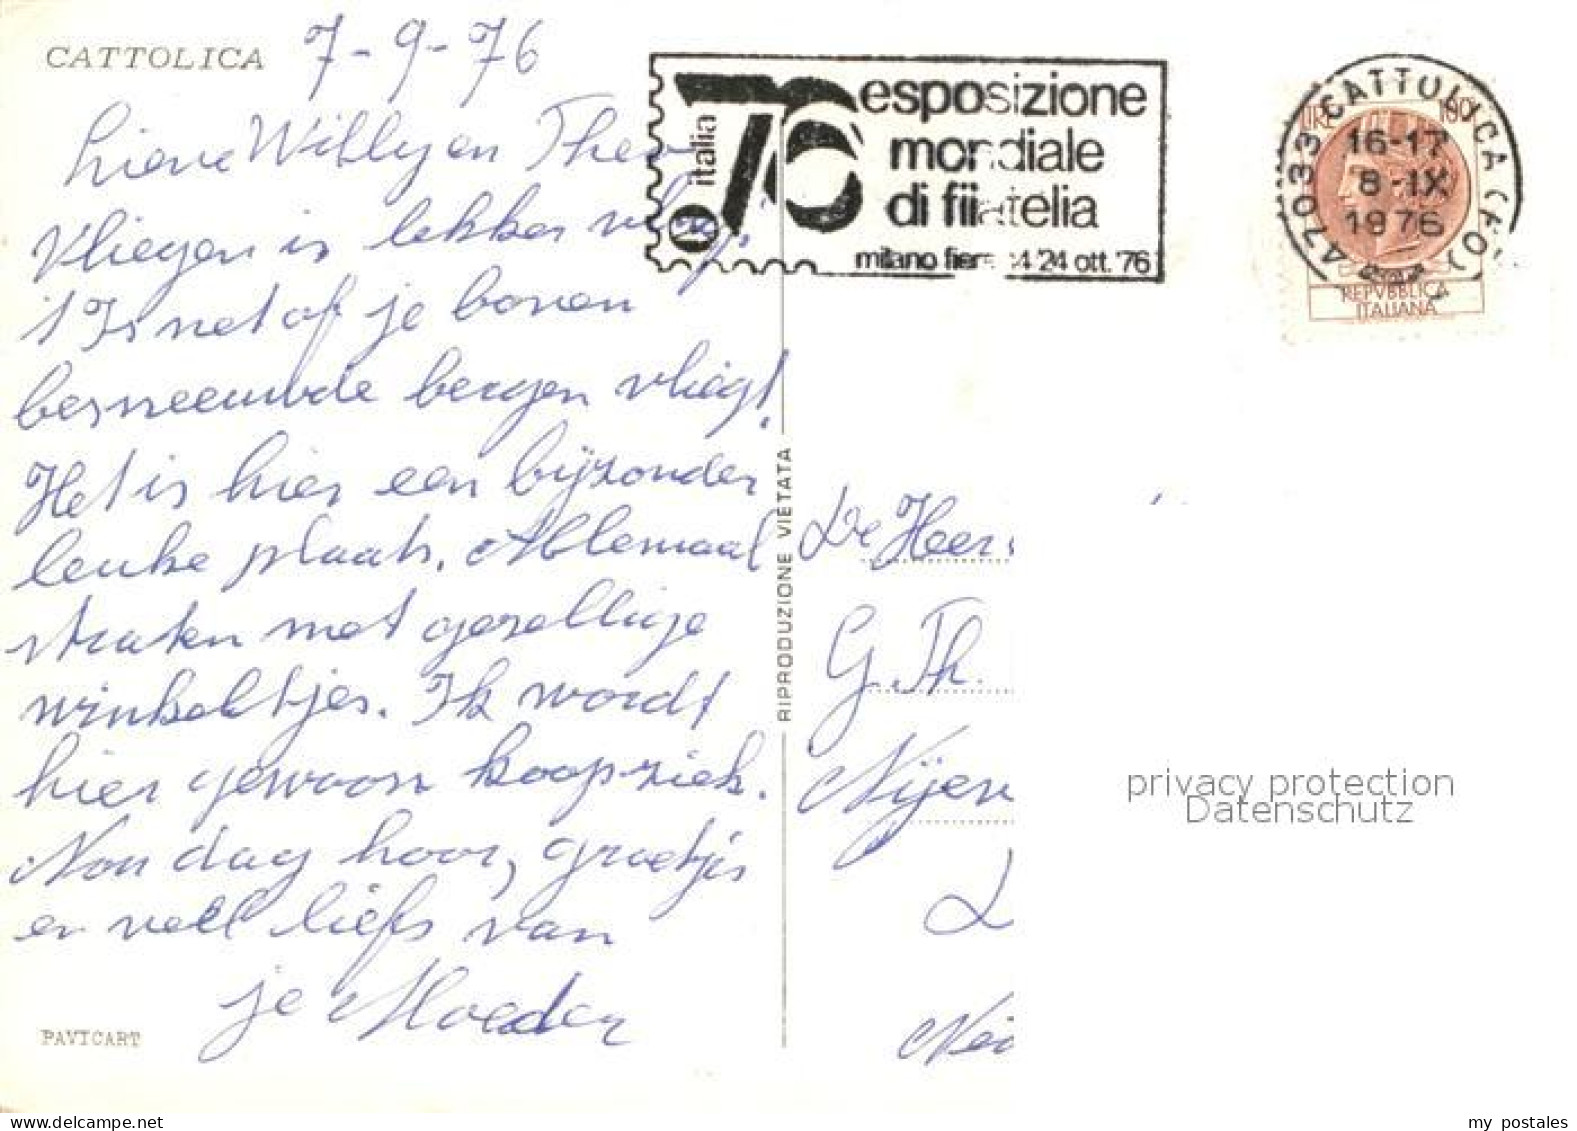 CATTOLICA
7-9-76
Lieve Willy en Theo
Vliegen is lekker vlug,
't Is net of je boven
besneeuwde bergen vliegt.
Het is hier een bijzonder
leuke plaats. Allemaal
straten met gezellige
winkeltjes. Ik wordt
hier gewoon koopziek.
Nou dag hoor, groetjes
en veel liefs van
je Moeder
PAVICART
RIPRODUZIONE VIETATA
italia
76
esposizione
mondiale
di filatelia
milano 24 ott. '76
47033 CATTOLICA (FO)
16-17
8-IX
1976
LIRE
REPVBBLICA
ITALIANA
De Heer
G. Th.
privacy protection
Datenschutz
my postales